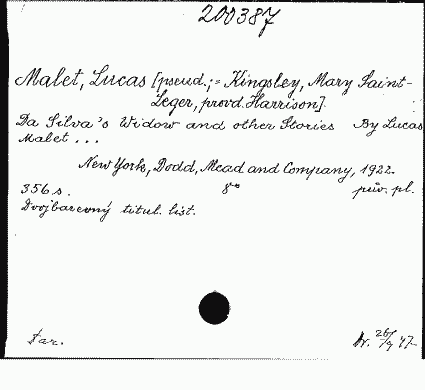 200387
Malet, Lucas [pseud.;= Kingsley, Mary Saint-
Leger, provd. Harrison].
Da Silva's Widow and other Stories By Lucas
Malet ...
New York, Dodd, Mead and Company, 1922.
356 s. 8° pův. pl.
Dvojbarevný titul. list.
Dar. 26/9 47